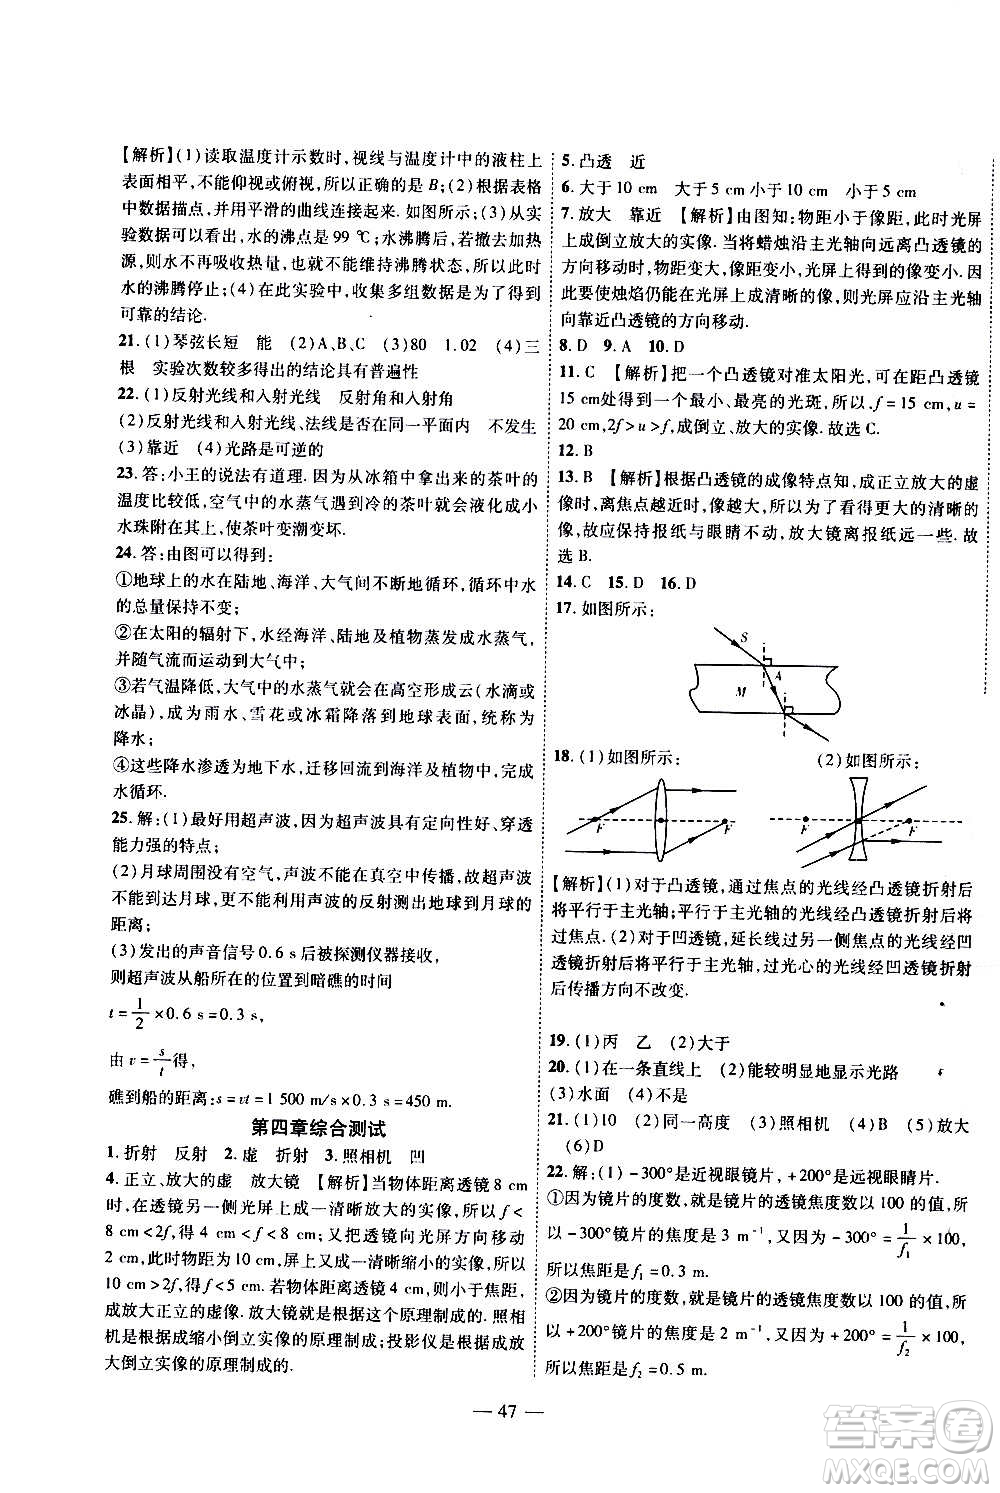 【解析】(1)读取温度计示数时,视线与温度计中的液柱上
表面相平,不能仰视或俯视,所以正确的是 B;(2)根据表格
中数据描点,并用平滑的曲线连接起来. 如图所示;(3)从实
验数据可以看出,水的沸点是 99 ℃;水沸腾后,若撤去加热
源,则水不再吸收热量,也就不能维持沸腾状态,所以此时
水的沸腾停止;(4)在此实验中,收集多组数据是为了得到
可靠的结论.
21. (1)琴弦长短 能 (2)A、B、C (3)80 1.02 (4)三
根 实验次数较多得出的结论具有普遍性
22. (1)反射光线和入射光线 反射角和入射角
(2)反射光线和入射光线、法线是否在同一平面内 不发生
(3)靠近 (4)光路是可逆的
23. 答:小王的说法有道理. 因为从冰箱中拿出来的茶叶的
温度比较低,空气中的水蒸气遇到冷的茶叶就会液化成小
水珠附在其上,使茶叶变潮变坏.
24. 答:由图可以得到:
①地球上的水在陆地、海洋、大气间不断地循环,循环中水
的总量保持不变;
②在太阳的辐射下,水经海洋、陆地及植物蒸发成水蒸气,
并随气流而运动到大气中;
③若气温降低,大气中的水蒸气就会在高空形成云(水滴或
冰晶),成为雨水、雪花或冰雹降落到地球表面,统称为
降水;
④这些降水渗透为地下水,迁移回流到海洋及植物中,完成
水循环.
25. 解:(1)最好用超声波,因为超声波具有定向性好、穿透
能力强的特点;
(2)月球周围没有空气,声波不能在真空中传播,故超声波
不能到达月球,也就不能利用声波的反射测出地球到月球的
距离;
(3)发出的声音信号 0.6 s 后被探测仪器接收,
则超声波从船所在的位置到暗礁的时间
t = 1/2 × 0.6 s = 0.3 s,
由 v = s/t 得,
礁到船的距离:s = vt = 1 500 m/s × 0.3 s = 450 m.
第四章综合测试
1. 折射 反射 2. 虚 折射 3. 照相机 凹
4. 正立、放大的虚 放大镜 【解析】当物体距离透镜 8 cm
时,在透镜另一侧光屏上呈现一清晰放大的实像,所以 f <
8 cm < 2f,故得 4 cm < f < 8 cm;若把透镜向光屏方向移动
2 cm,此时物距为 10 cm,屏上又成一清晰缩小的实像,所以
10 cm > 2f,得 f < 5 cm. 若物体距离透镜 4 cm,则小于焦距,
成放大正立的虚像. 放大镜是根据这个原理制成的. 照相
机是根据成缩小倒立实像的原理制成;投影仪是根据成放
大倒立实像的原理制成的.
5. 凸透 近
6. 大于 10 cm 大于 5 cm 小于 10 cm 小于 5 cm
7. 放大 靠近 【解析】由图知:物距小于像距,此时光屏
上成倒立放大的实像. 当将蜡烛沿主光轴向远离凸透镜的
方向移动时,物距变大,像距变小,光屏上所成的像变小. 因
此要使烛焰仍能在光屏上成清晰的像,则光屏应沿主光轴
向靠近凸透镜的方向移动.
8. D 9. A 10. D
11. C 【解析】把一个凸透镜对准太阳光,可在距凸透镜
15 cm 处得到一个最小、最亮的光斑,所以 f = 15 cm,u =
20 cm,2f > u > f,成倒立、放大的实像. 故选 C.
12. B
13. B 【解析】根据凸透镜的成像特点知,成正立放大的虚
像时,离焦点越近时,像越大,所以为了看得更大的清晰的
像,故应保持报纸与眼睛不动,放大镜离报纸远一些. 故
选 B.
14. C 15. D 16. D
17. 如图所示:
S
A
M
18. (1)如图所示: (2)如图所示:
F F F F
【解析】(1)对于凸透镜,通过焦点的光线经凸透镜折射后
将平行于主光轴;平行于主光轴的光线经凸透镜折射后将过
焦点. (2)对于凹透镜,延长线过另一侧焦点的光线经凹
透镜折射后将平行于主光轴,过光心的光线经凹透镜折射
后传播方向不改变.
19. (1)丙 乙 (2)大于
20. (1)在一条直线上 (2)能较明显地显示光路
(3)水面 (4)不是
21. (1)10 (2)同一高度 (3)照相机 (4)B (5)放大
(6)D
22. 解:(1) -300°是近视眼镜片,+200°是远视眼睛片.
①因为镜片的度数,就是镜片的透镜焦度数以 100 的值,所
以 -300°镜片的焦度是 3 m⁻¹,又因为 -300° = 1/f₁ × 100,
所以焦距是 f₁ = 0.3 m.
②因为镜片的度数,就是镜片的透镜焦度数以 100 的值,所
以 +200°镜片的焦度是 2 m⁻¹,又因为 +200° = 1/f₂ × 100,
所以焦距是 f₂ = 0.5 m.
— 47 —
答案卷
MXQE.COM